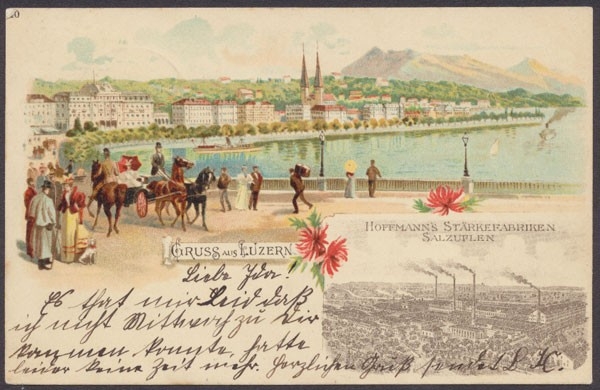 20
GRUSS AUS LUZERN
HOFFMANN'S STÄRKEFABRIKEN
SALZUFLEN
Liebe Ida!
Es that mir Leid daß
ich nicht Mittwoch zu Dir
kommen konnte, hatte
leider keine Zeit mehr. Herzlichen Gruß sendet L. H.